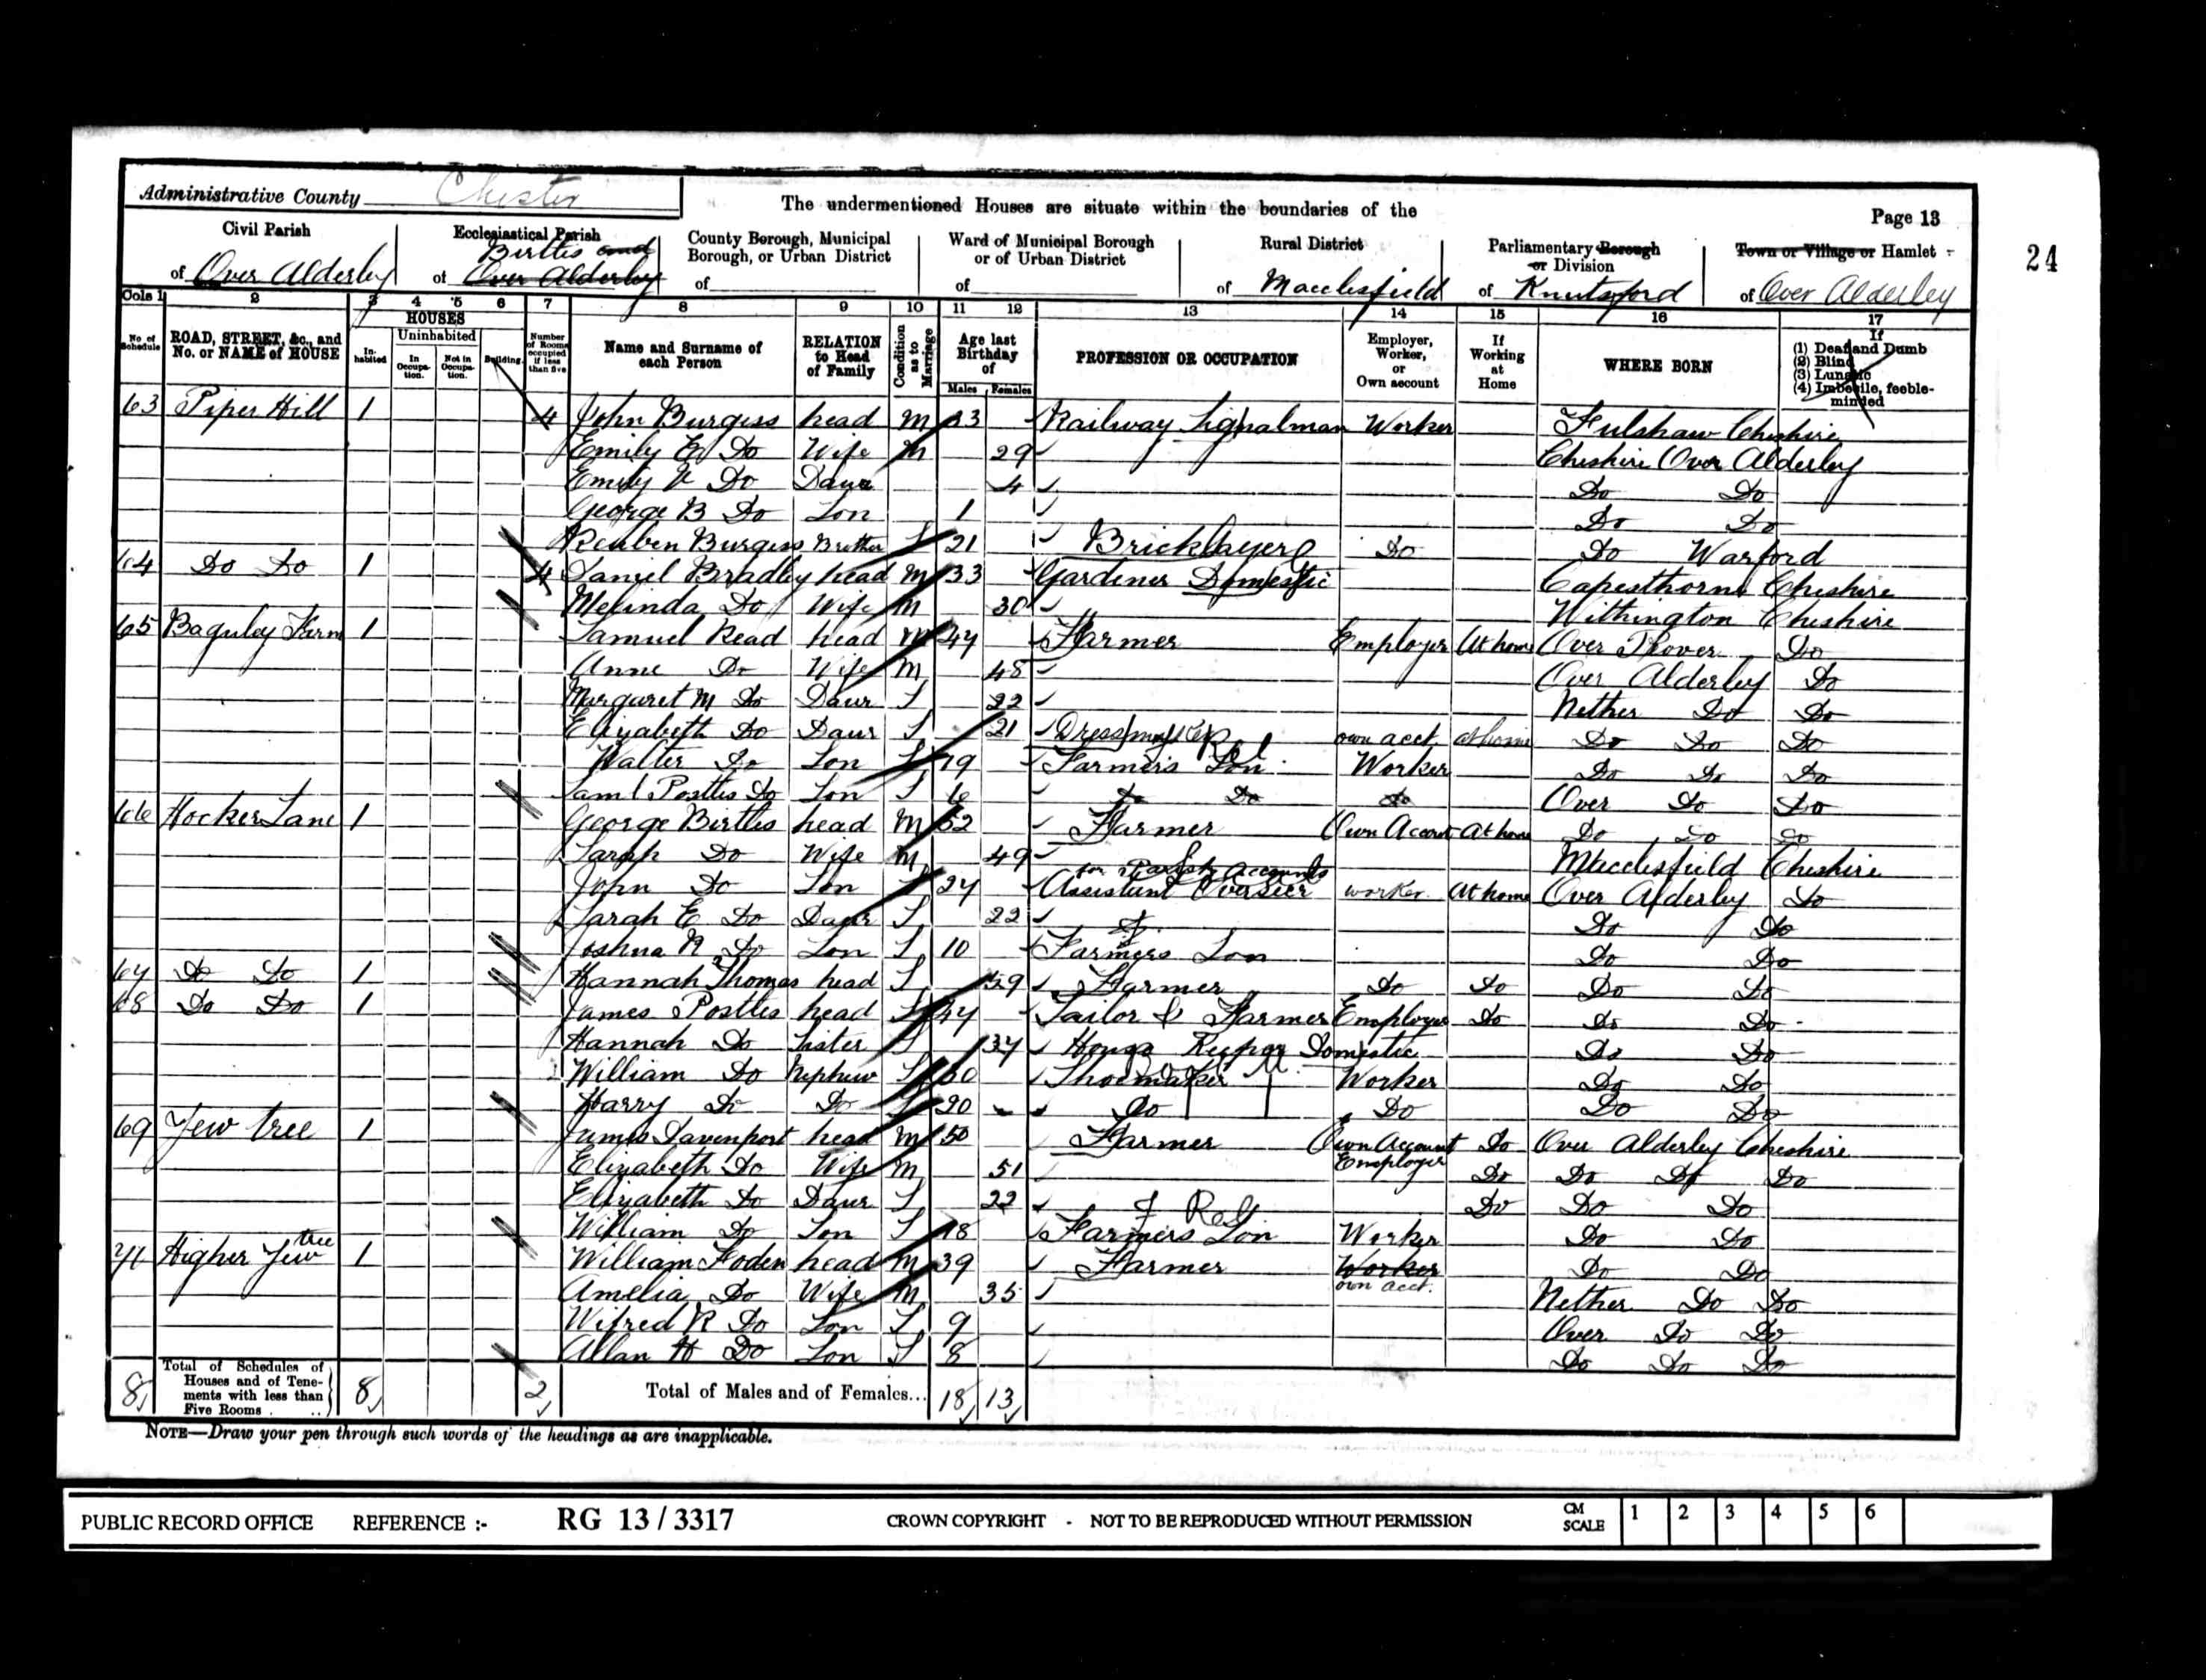 Administrative County Chester
The undermentioned Houses are situate within the boundaries of the
Page 13
24
Civil Parish of Over Alderley
Ecclesiastical Parish of Birtles and Over Alderley
County Borough, Municipal Borough, or Urban District of
Ward of Municipal Borough or of Urban District of
Rural District of Macclesfield
Parliamentary Borough or Division of Knutsford
Town or Village or Hamlet of Over Alderley
Cols 1 2 3 4 5 6 7 8 9 10 11 12 13 14 15 16 17
No. of Schedule
ROAD, STREET, &c., and No. or NAME of HOUSE
HOUSES
Inhabited
Uninhabited
In Occupation.
Not in Occupation.
Building.
Number of Rooms occupied if less than five
Name and Surname of each Person
RELATION to Head of Family
Condition as to Marriage
Age last Birthday of
Males Females
PROFESSION OR OCCUPATION
Employer, Worker, or Own account
If Working at Home
WHERE BORN
If (1) Deaf and Dumb (2) Blind (3) Lunatic (4) Imbecile, feeble-minded
63 Piper Hill 1 4 John Burgess head M 33 Railway Signalman Worker Fulshaw Cheshire
Emily E Do Wife M 29 Cheshire Over Alderley
Emily V Do Daur 4 Do Do
George B Do Son 1 Do Do
Reuben Burgess Brother S 21 Bricklayer Do Do Warford
64 Do Do 1 4 Daniel Bradley head M 33 Gardener Domestic Capesthorne Cheshire
Melinda Do Wife M 30 Withington Cheshire
65 Baguley Farm 1 Samuel Read head M 47 Farmer Employer At home Over Do
Anne Do Wife M 48 Over Alderley Do
Margaret M Do Daur S 22 Nether Do Do
Elizabeth Do Daur S 21 Dressmaker own acct at home Do Do Do
Walter Do Son S 19 Farmers Son Worker Do Do Do
Saml Postles Do Son S 6 Do Do Do Over Do Do
66 Hocker Lane 1 George Birtles head M 52 Farmer Own Account At home Do Do Do
Sarah Do Wife M 49 Macclesfield Cheshire
for Parish Accounts
John Do Son S 24 Assistant Overseer worker At home Over Alderley Do
Sarah E Do Daur S 22 Do Do
Joshua R Do Son S 10 Farmers Son Do Do
67 Do Do 1 Hannah Thomas head S 59 Farmer Do Do Do Do
68 Do Do 1 James Postles head S 44 Tailor & Farmer Employer Do Do Do
Hannah Do Sister S 34 House Keeper Domestic Do Do
William Do Nephew S Shoemaker Worker Do Do
Harry Do Do S 20 Do Do Do Do
69 Yew tree 1 James Davenport head M 50 Farmer Own Account Do Over Alderley Cheshire
Employer
Elizabeth Do Wife M 51 Do Do Do Do
Elizabeth Do Daur S 22 Do Do Do
William Do Son S 18 Farmers Son Worker Do Do
Higher Yew tree 1 William Foden head M 39 Farmer Worker Do Do
own acct.
Amelia Do Wife M 35 Nether Do Do
Wilfred R Do Son S 9 Over Do Do
Allan H Do Son S 8 Do Do Do
8 Total of Schedules of Houses and of Tenements with less than Five Rooms 8 2 Total of Males and of Females... 18 13
NOTE—Draw your pen through such words of the headings as are inapplicable.
PUBLIC RECORD OFFICE REFERENCE :- RG 13 / 3317 CROWN COPYRIGHT - NOT TO BE REPRODUCED WITHOUT PERMISSION CM SCALE 1 2 3 4 5 6